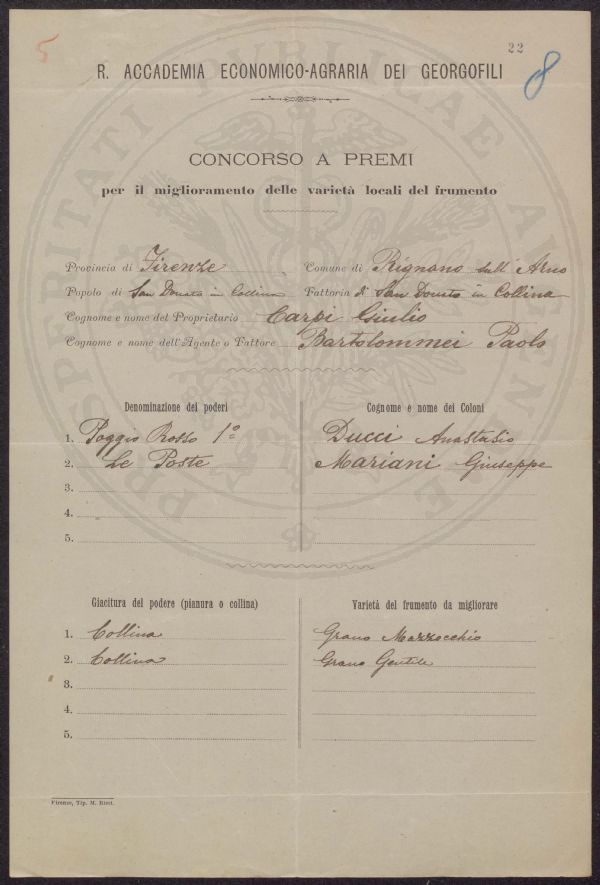 5
22
8
R. ACCADEMIA ECONOMICO-AGRARIA DEI GEORGOFILI
CONCORSO A PREMI
per il miglioramento delle varietà locali del frumento
Provincia di Firenze Comune di Rignano sull'Arno
Popolo di San Donato in Collina Fattoria di San Donato in Collina
Cognome e nome del Proprietario Carpi Giulio
Cognome e nome dell'Agente o Fattore Bartolommei Paolo
Denominazione dei poderi Cognome e nome dei Coloni
1. Poggio Rosso 1º Ducci Anastasio
2. Le Poste Mariani Giuseppe
3.
4.
5.
Giacitura del podere (pianura o collina) Varietà del frumento da migliorare
1. Collina Grano Mazzocchio
2. Collina Grano Gentile
3.
4.
5.
Firenze, Tip. M. Ricci.
PROSPERITATI PUBLICAE AUGENDAE